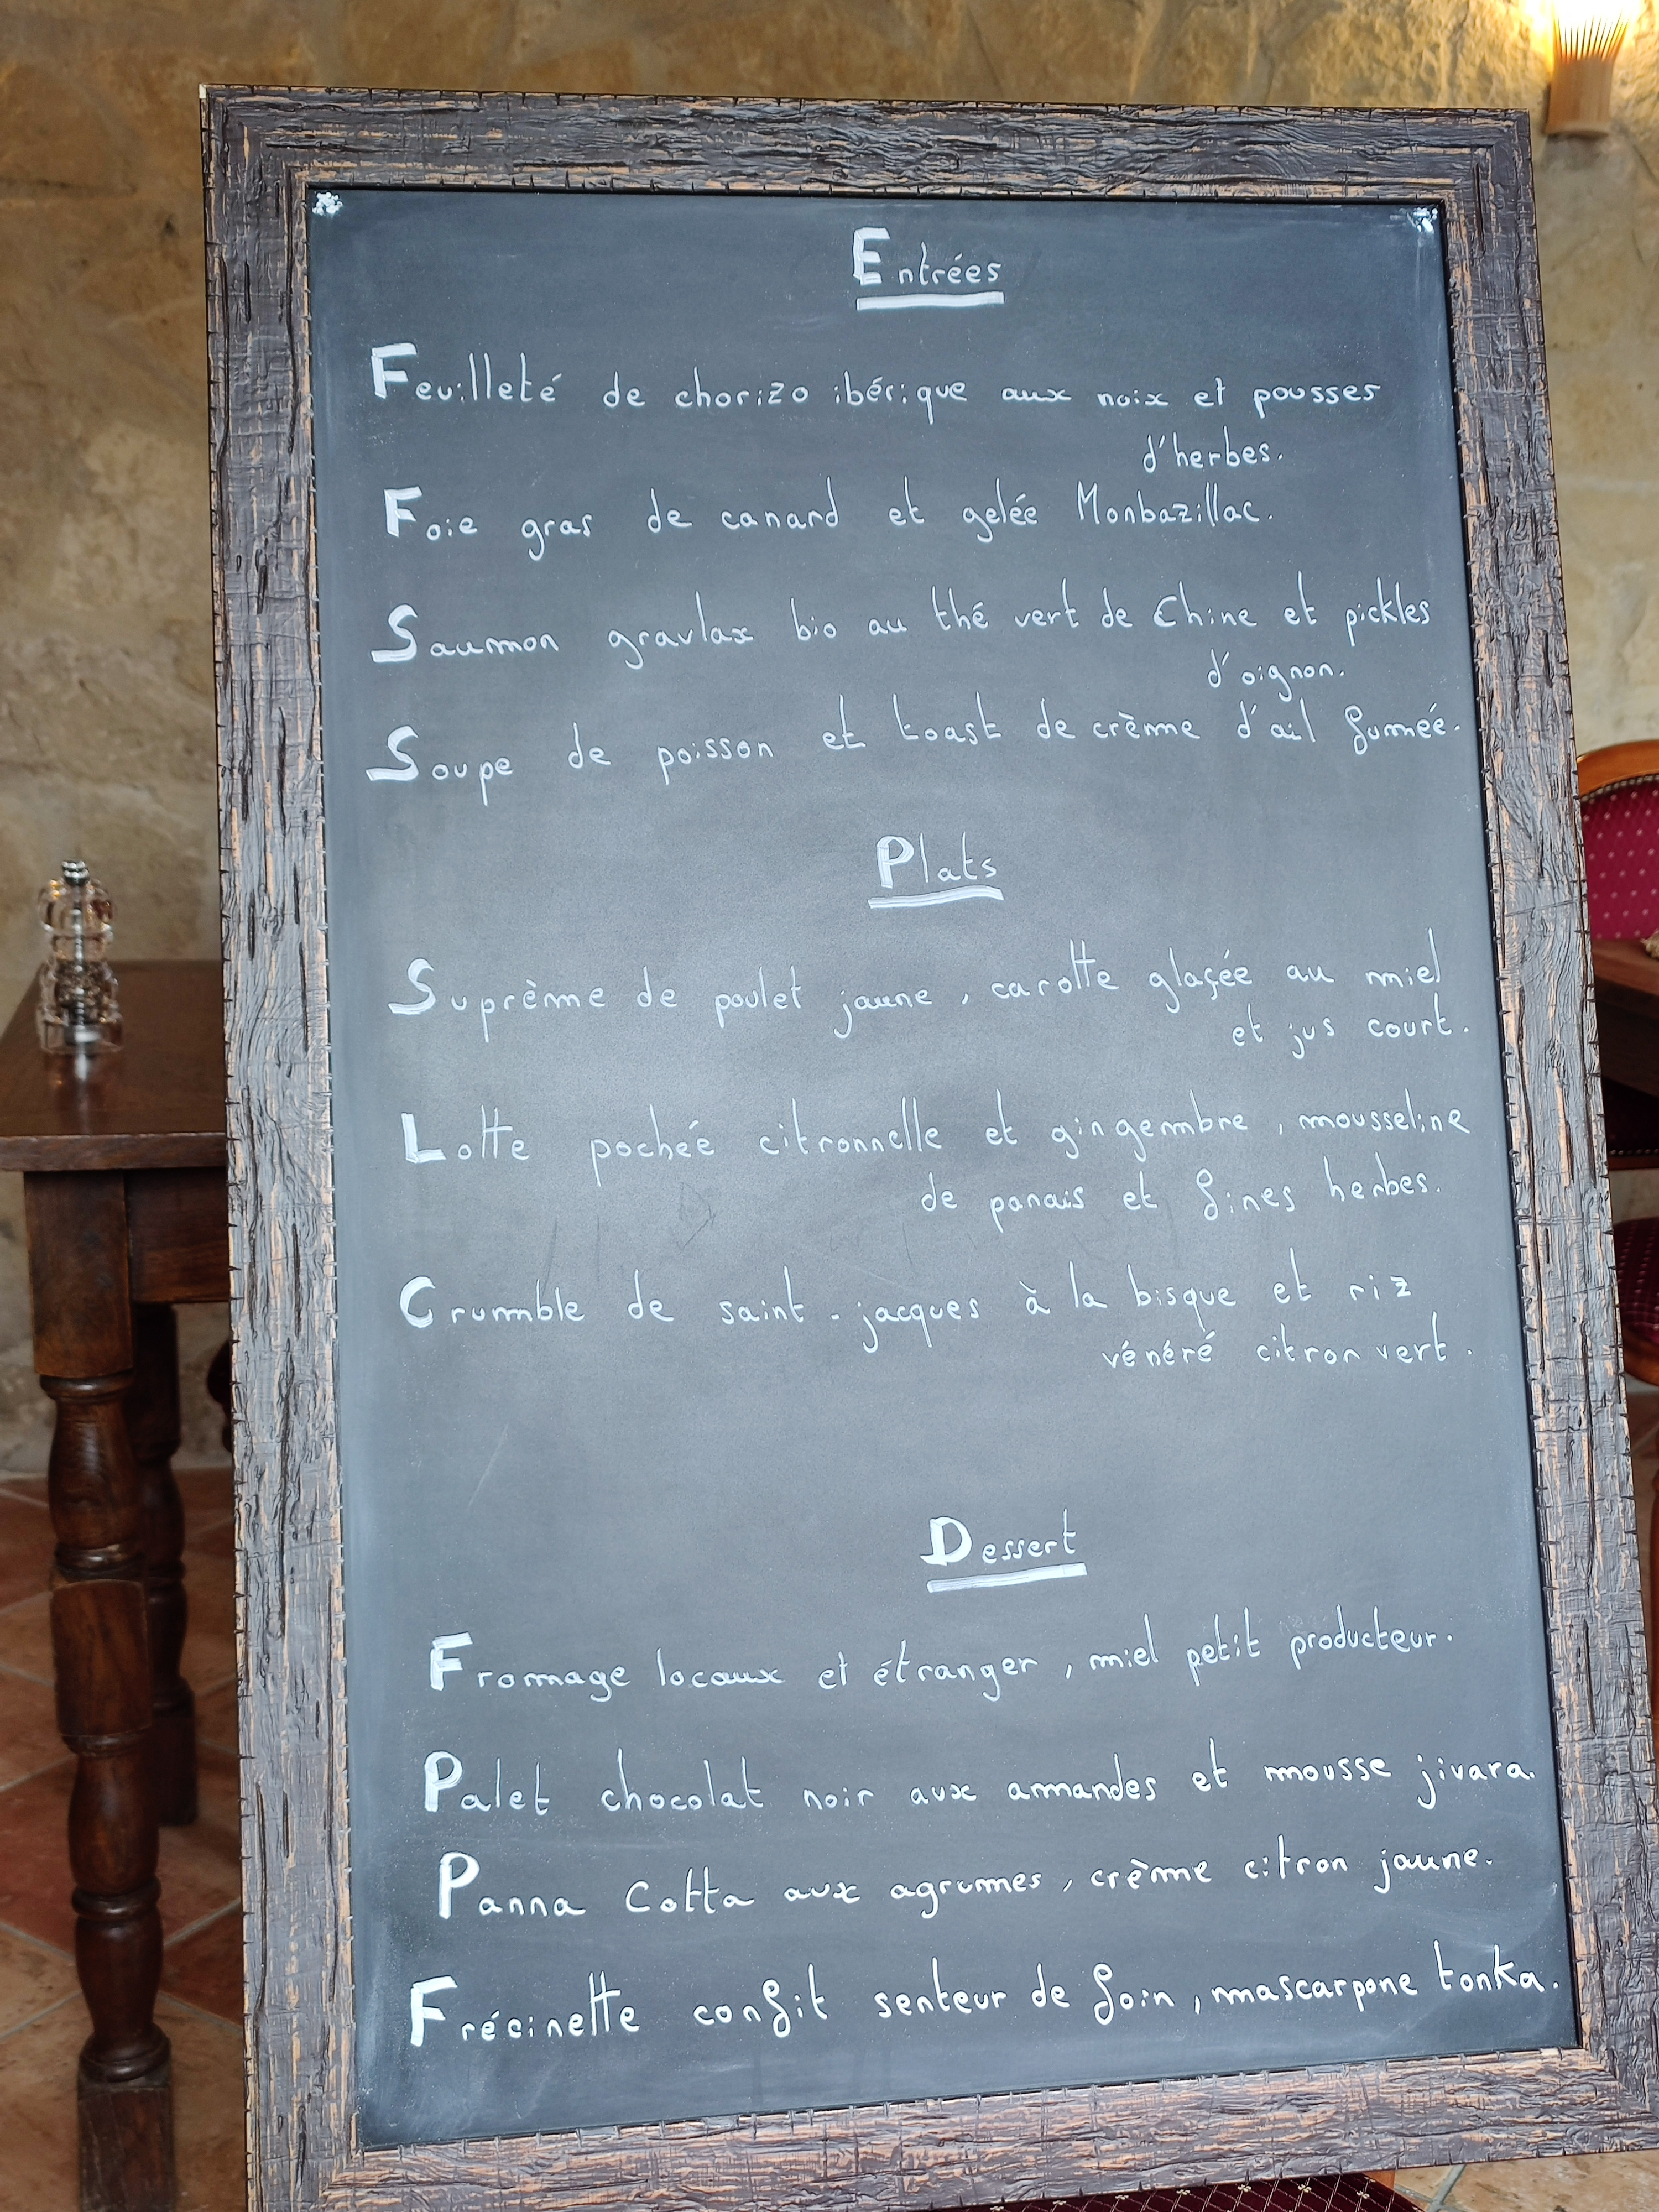 Entrées
Feuilleté de chorizo ibérique aux noix et pousses
d'herbes.
Foie gras de canard et gelée Monbazillac.
Saumon gravlax bio au thé vert de Chine et pickles
d'oignon.
Soupe de poisson et toast de crème d'ail fumée.
Plats
Suprème de poulet jaune, carotte glaçée au miel
et jus court.
Lotte pochée citronnelle et gingembre, mousseline
de panais et fines herbes.
Crumble de saint-jacques à la bisque et riz
vénéré citron vert.
Dessert
Fromage locaux et étranger, miel petit producteur.
Palet chocolat noir aux amandes et mousse jivara.
Panna Cotta aux agrumes, crème citron jaune.
Frécinette confit senteur de foin, mascarpone tonka.